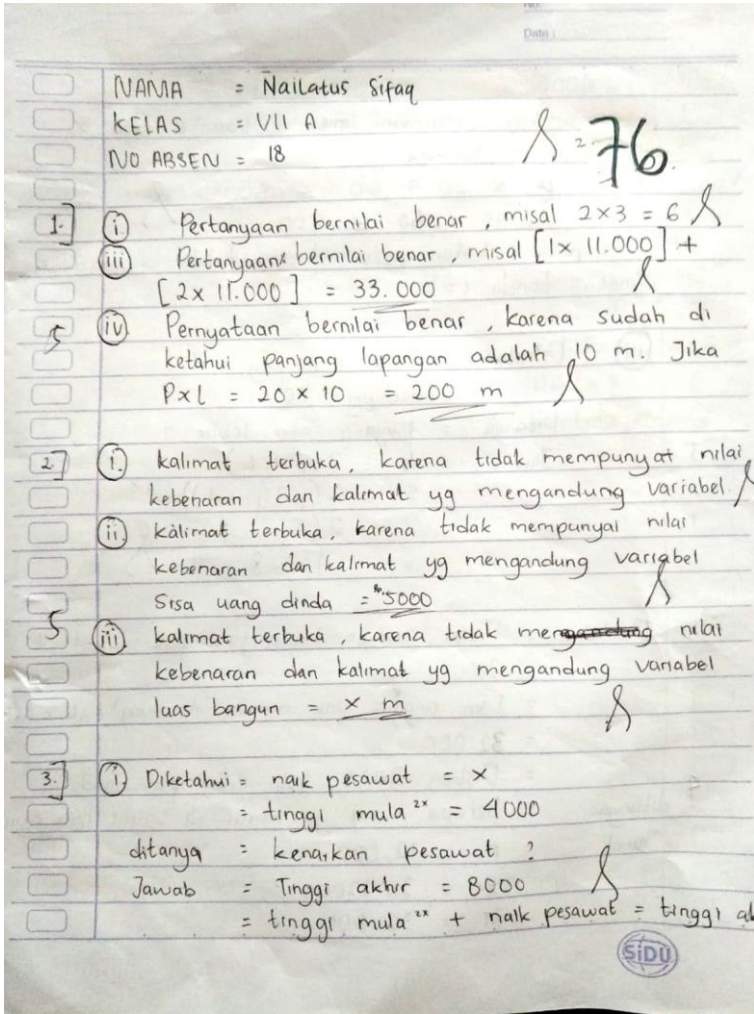 No:
Date :
NAMA = Nailatus Sifaq
KELAS = VII A
NO ABSEN = 18
= 76
1. (i) Pertanyaan bernilai benar, misal 2 × 3 = 6
(iii) Pertanyaan bernilai benar, misal [1 × 11.000] +
[2 × 11.000] = 33.000
5 (iv) Pernyataan bernilai benar, karena sudah di
ketahui panjang lapangan adalah 10 m. Jika
P×l = 20 × 10 = 200 m
2. (i.) kalimat terbuka, karena tidak mempunyai nilai
kebenaran dan kalimat yg mengandung variabel.
(ii) kalimat terbuka, karena tidak mempunyai nilai
kebenaran dan kalimat yg mengandung variabel
Sisa uang dinda = Rp.5000
5 (iii) kalimat terbuka, karena tidak mengandung nilai
kebenaran dan kalimat yg mengandung variabel
luas bangun = x m
3. (i) Diketahui = naik pesawat = x
= tinggi mula²ˣ = 4000
ditanya = kenaikan pesawat ?
Jawab = Tinggi akhir = 8000
= tinggi mula²ˣ + naik pesawat = tinggi ak
SiDU